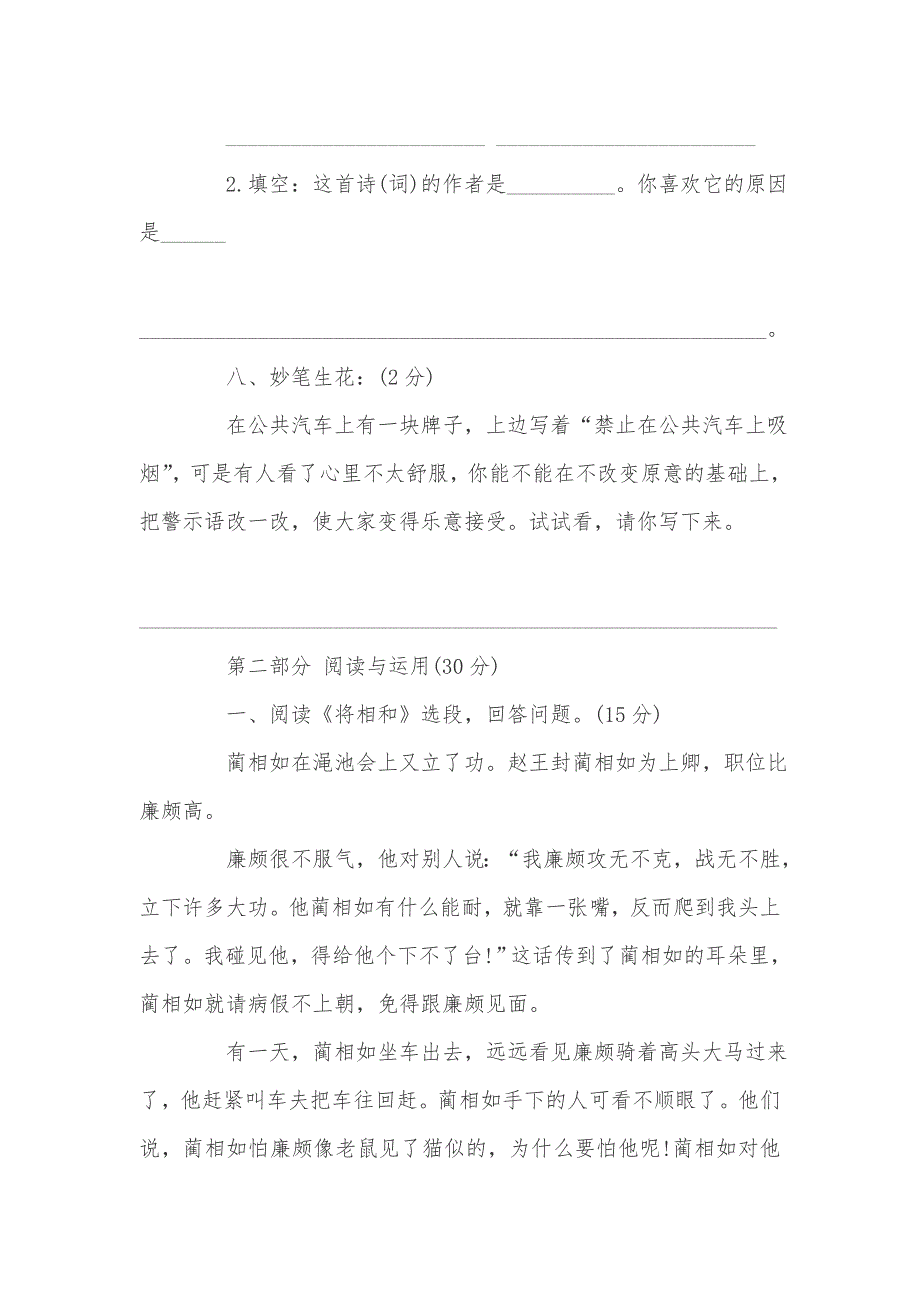 ________________________ ________________________
2.填空：这首诗(词)的作者是__________。你喜欢它的原因
是______
__________________________________________________________。
八、妙笔生花：(2分)
在公共汽车上有一块牌子，上边写着“禁止在公共汽车上吸
烟”，可是有人看了心里不太舒服，你能不能在不改变原意的基础上，
把警示语改一改，使大家变得乐意接受。试试看，请你写下来。
___________________________________________________________
第二部分 阅读与运用(30分)
一、阅读《将相和》选段，回答问题。(15分)
蔺相如在渑池会上又立了功。赵王封蔺相如为上卿，职位比
廉颇高。
廉颇很不服气，他对别人说：“我廉颇攻无不克，战无不胜，
立下许多大功。他蔺相如有什么能耐，就靠一张嘴，反而爬到我头上
去了。我碰见他，得给他个下不了台!”这话传到了蔺相如的耳朵里，
蔺相如就请病假不上朝，免得跟廉颇见面。
有一天，蔺相如坐车出去，远远看见廉颇骑着高头大马过来
了，他赶紧叫车夫把车往回赶。蔺相如手下的人可看不顺眼了。他们
说，蔺相如怕廉颇像老鼠见了猫似的，为什么要怕他呢!蔺相如对他